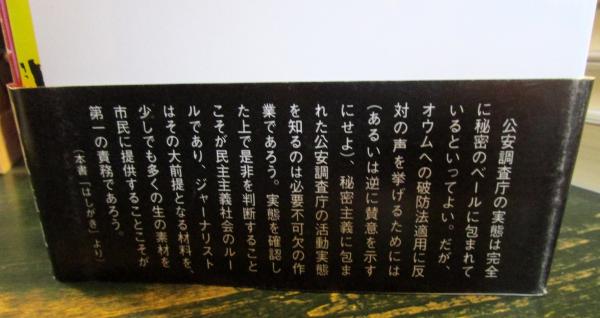 公安調査庁の実態は完全
に秘密のベールに包まれて
いるといってよい。だが、
オウムへの破防法適用に反
対の声を挙げるためには
(あるいは逆に賛意を示す
にせよ)、秘密主義に包ま
れた公安調査庁の活動実態
を知るのは必要不可欠の作
業であろう。実態を確認し
た上で是非を判断すること
こそが民主主義社会のルー
ルであり、ジャーナリスト
はその大前提となる材料を、
少しでも多くの生の素材を
市民に提供することこそが
第一の責務であろう。
(本書「はしがき」より)